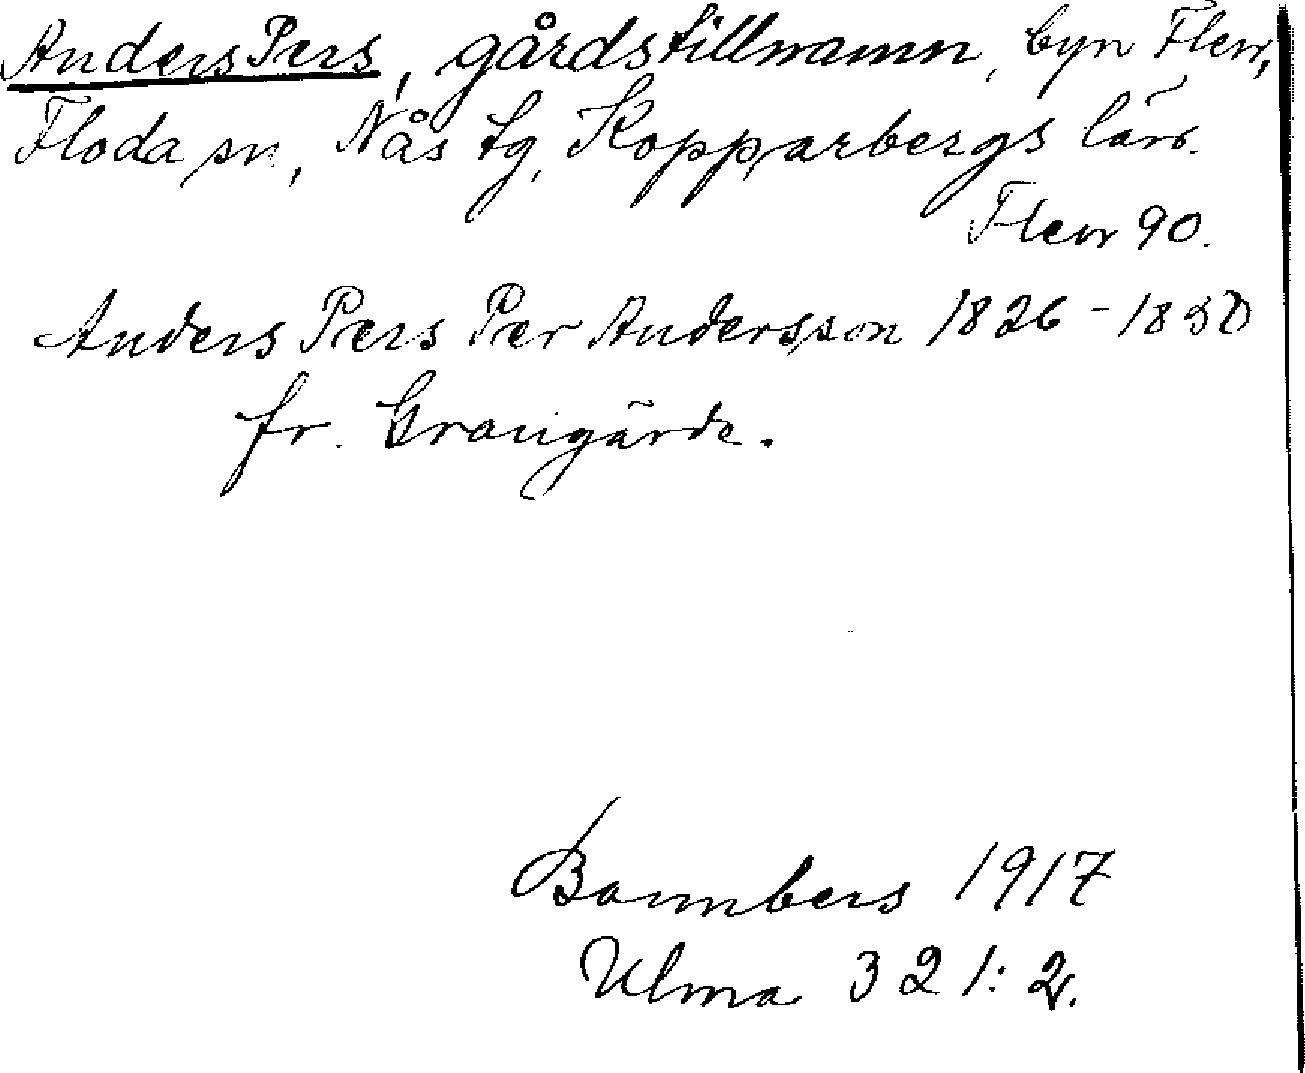 Anders Pers, gårdstillnamn, byn Flen,
Floda sn, Nås tg, Kopparbergs län.
Flen 90.
Anders Pers Per Andersson 1826 - 18
fr. Grangärde.
Bannbers 1917
Ulma 321:2.